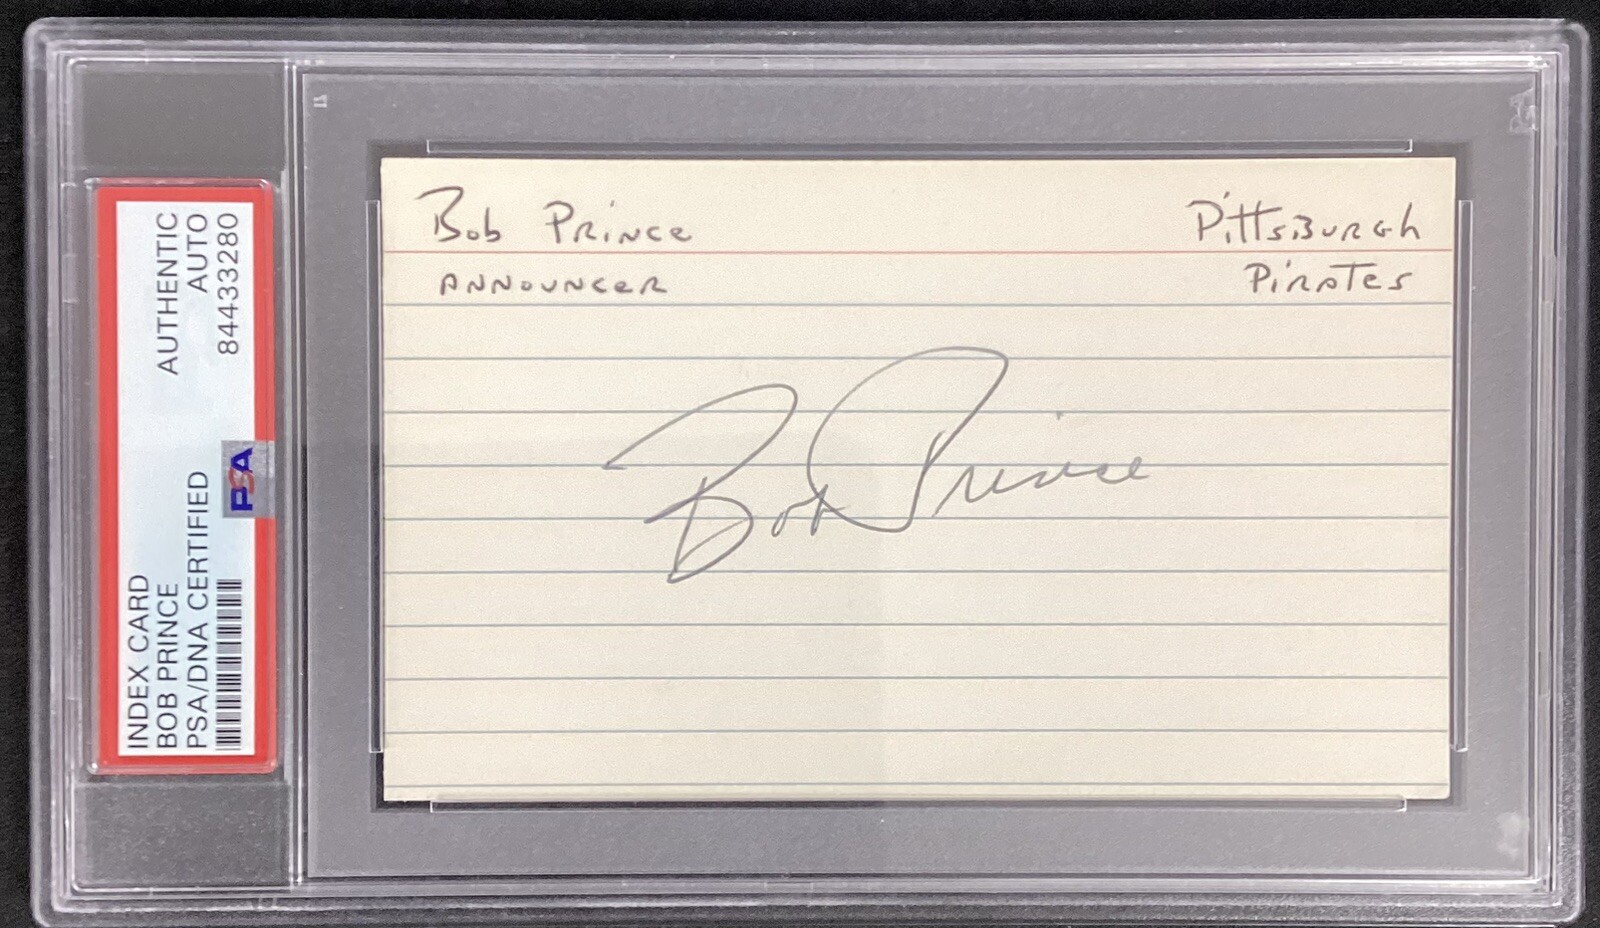 INDEX CARD
BOB PRINCE
PSA/DNA CERTIFIED
AUTHENTIC
AUTO
84433280
PSA
Bob Prince
Announcer
Pittsburgh
Pirates
Bob Prince